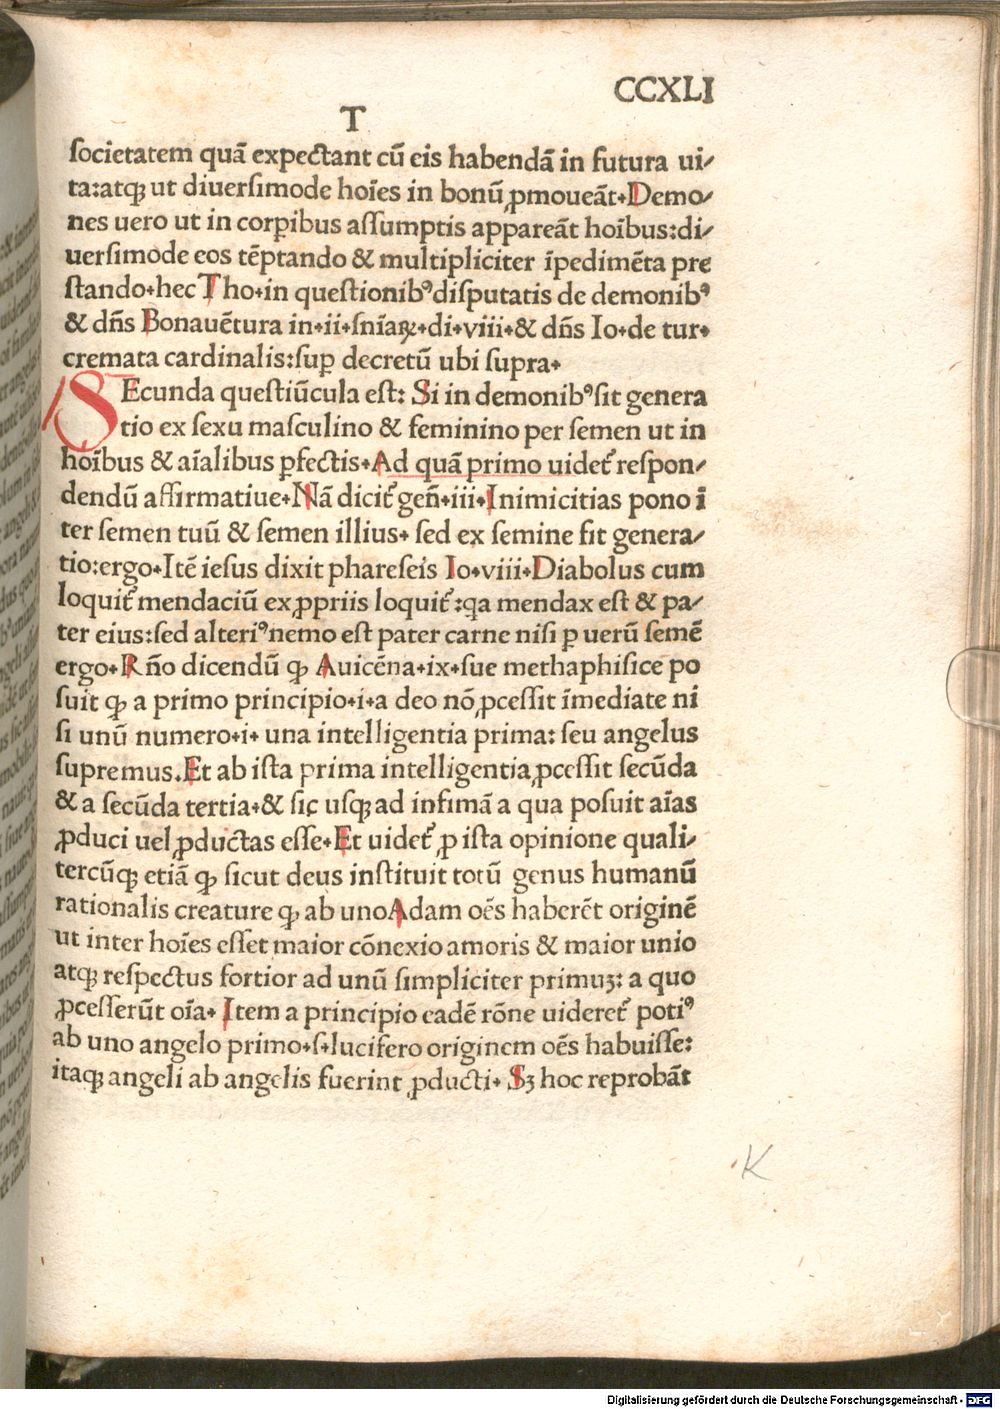 CCXLI
T
ſocietatem quā expectant cū eis habendā in futura ui⸗
ta:atqꝫ ut diuerſimode hoīes in bonū ꝓmoueāt. Demo⸗
nes uero ut in corꝑibus aſſumptis appareāt hoībus:di⸗
uerſimode eos tēptando & multipliciter īpedimēta pre
ſtando.hec Tho.in queſtionibꝰ diſputatis de demonibꝰ
& dn̄s Bonauētura in.ii.ſnīaꝝ.di.viii.& dn̄s Io.de tur.
cremata cardinalis:ſuꝑ decretū ubi ſupra.
SEcunda queſtiūcula eſt: Si in demonibꝰ ſit genera
tio ex ſexu maſculino & feminino per ſemen ut in
hoībus & aīalibus ꝑfectis. Ad quā primo uidet᷑ reſpon⸗
dendū affirmatiue. Nā dicit᷑ gen̄.iii. Inimicitias pono ī
ter ſemen tuū & ſemen illius. ſed ex ſemine fit genera⸗
tio:ergo.Itē ieſus dixit phareſeis Io.viii. Diabolus cum
loquit᷑ mendaciū ex ꝓpriis loquit᷑:qa mendax eſt & pa⸗
ter eius:ſed alteriꝰ nemo eſt pater carne niſi ꝑ uerū ſemē
ergo. Rn̄o dicendū ꝙ Auicēna.ix.ſue methaphiſice po
ſuit ꝙ a primo principio.i.a deo nō ꝓceſſit īmediate ni
ſi unū numero.i. una intelligentia prima: ſeu angelus
ſupremus. Et ab iſta prima intelligentia ꝓceſſit ſecūda
& a ſecūda tertia.& ſic uſqꝫ ad infimā a qua poſuit aīas
ꝓduci uel ꝓductas eſſe. Et uidet᷑ ꝓ iſta opinione quali⸗
tercūqꝫ etiā ꝙ ſicut deus inſtituit totū genus humanū
rationalis creature ꝙ ab uno Adam oēs haberēt originē
ut inter hoīes eſſet maior cōnexio amoris & maior unio
atqꝫ reſpectus fortior ad unū ſimpliciter primuꝫ: a quo
ꝓceſſerūt oīa. Item a principio eadē rōne uideret᷑ potiꝰ
ab uno angelo primo.ſ.lucifero originem oēs habuiſſe:
itaqꝫ angeli ab angelis fuerint ꝓducti. Sꝫ hoc reprobāt
K
Digitalisierung gefördert durch die Deutsche Forschungsgemeinschaft - DFG